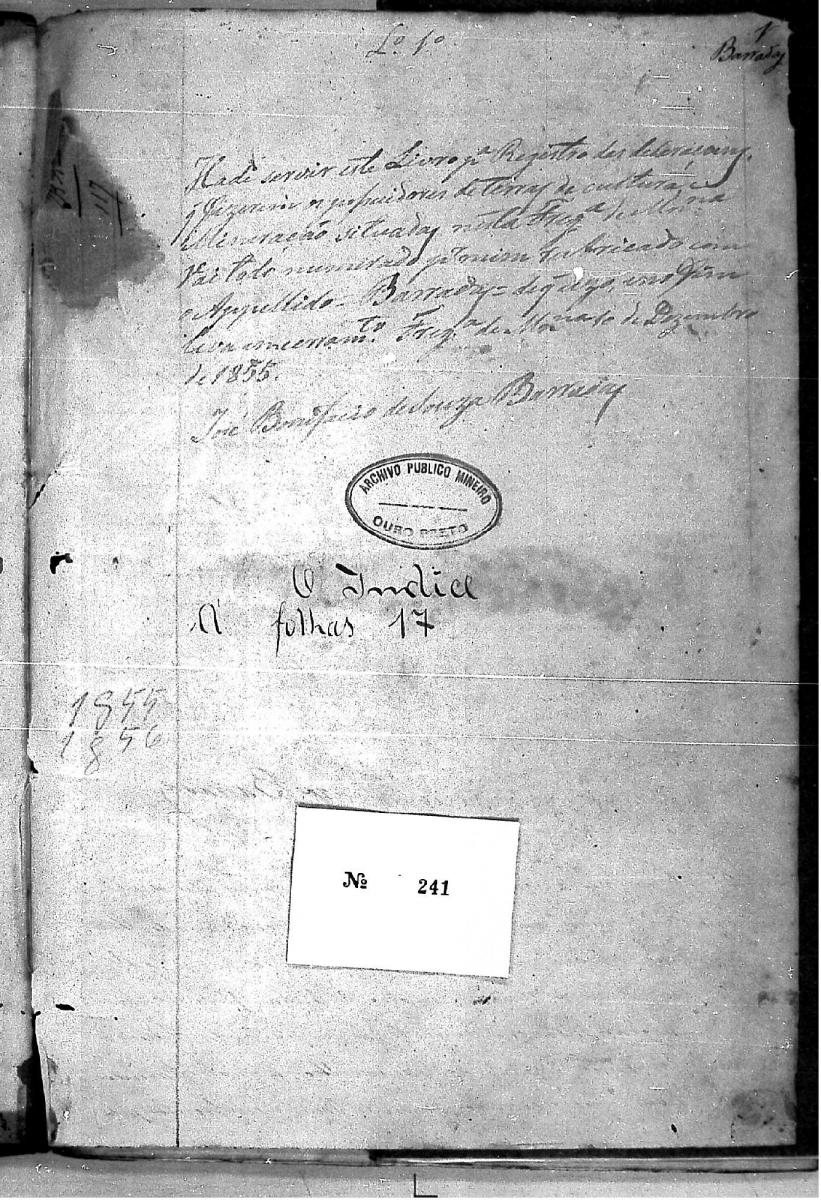 Lº 1º
1
Barradas
117
Hade servir este Livro pª Registro das declaraçoens,
q fizerem os possuidores de terras de cultura, e
Mineração situadas nesta Fregª de
Vai todo numerado, por mim rubricado com
o Appellido = Barradas = de q uzo, e no fim
leva encerramto. Fregª de de Dezembro
de 1855.
José Bonifacio de Souza Barradas
ARCHIVO PUBLICO MINEIRO
OURO PRETO
O Indice
A folhas 17
1855
1856
№ 241